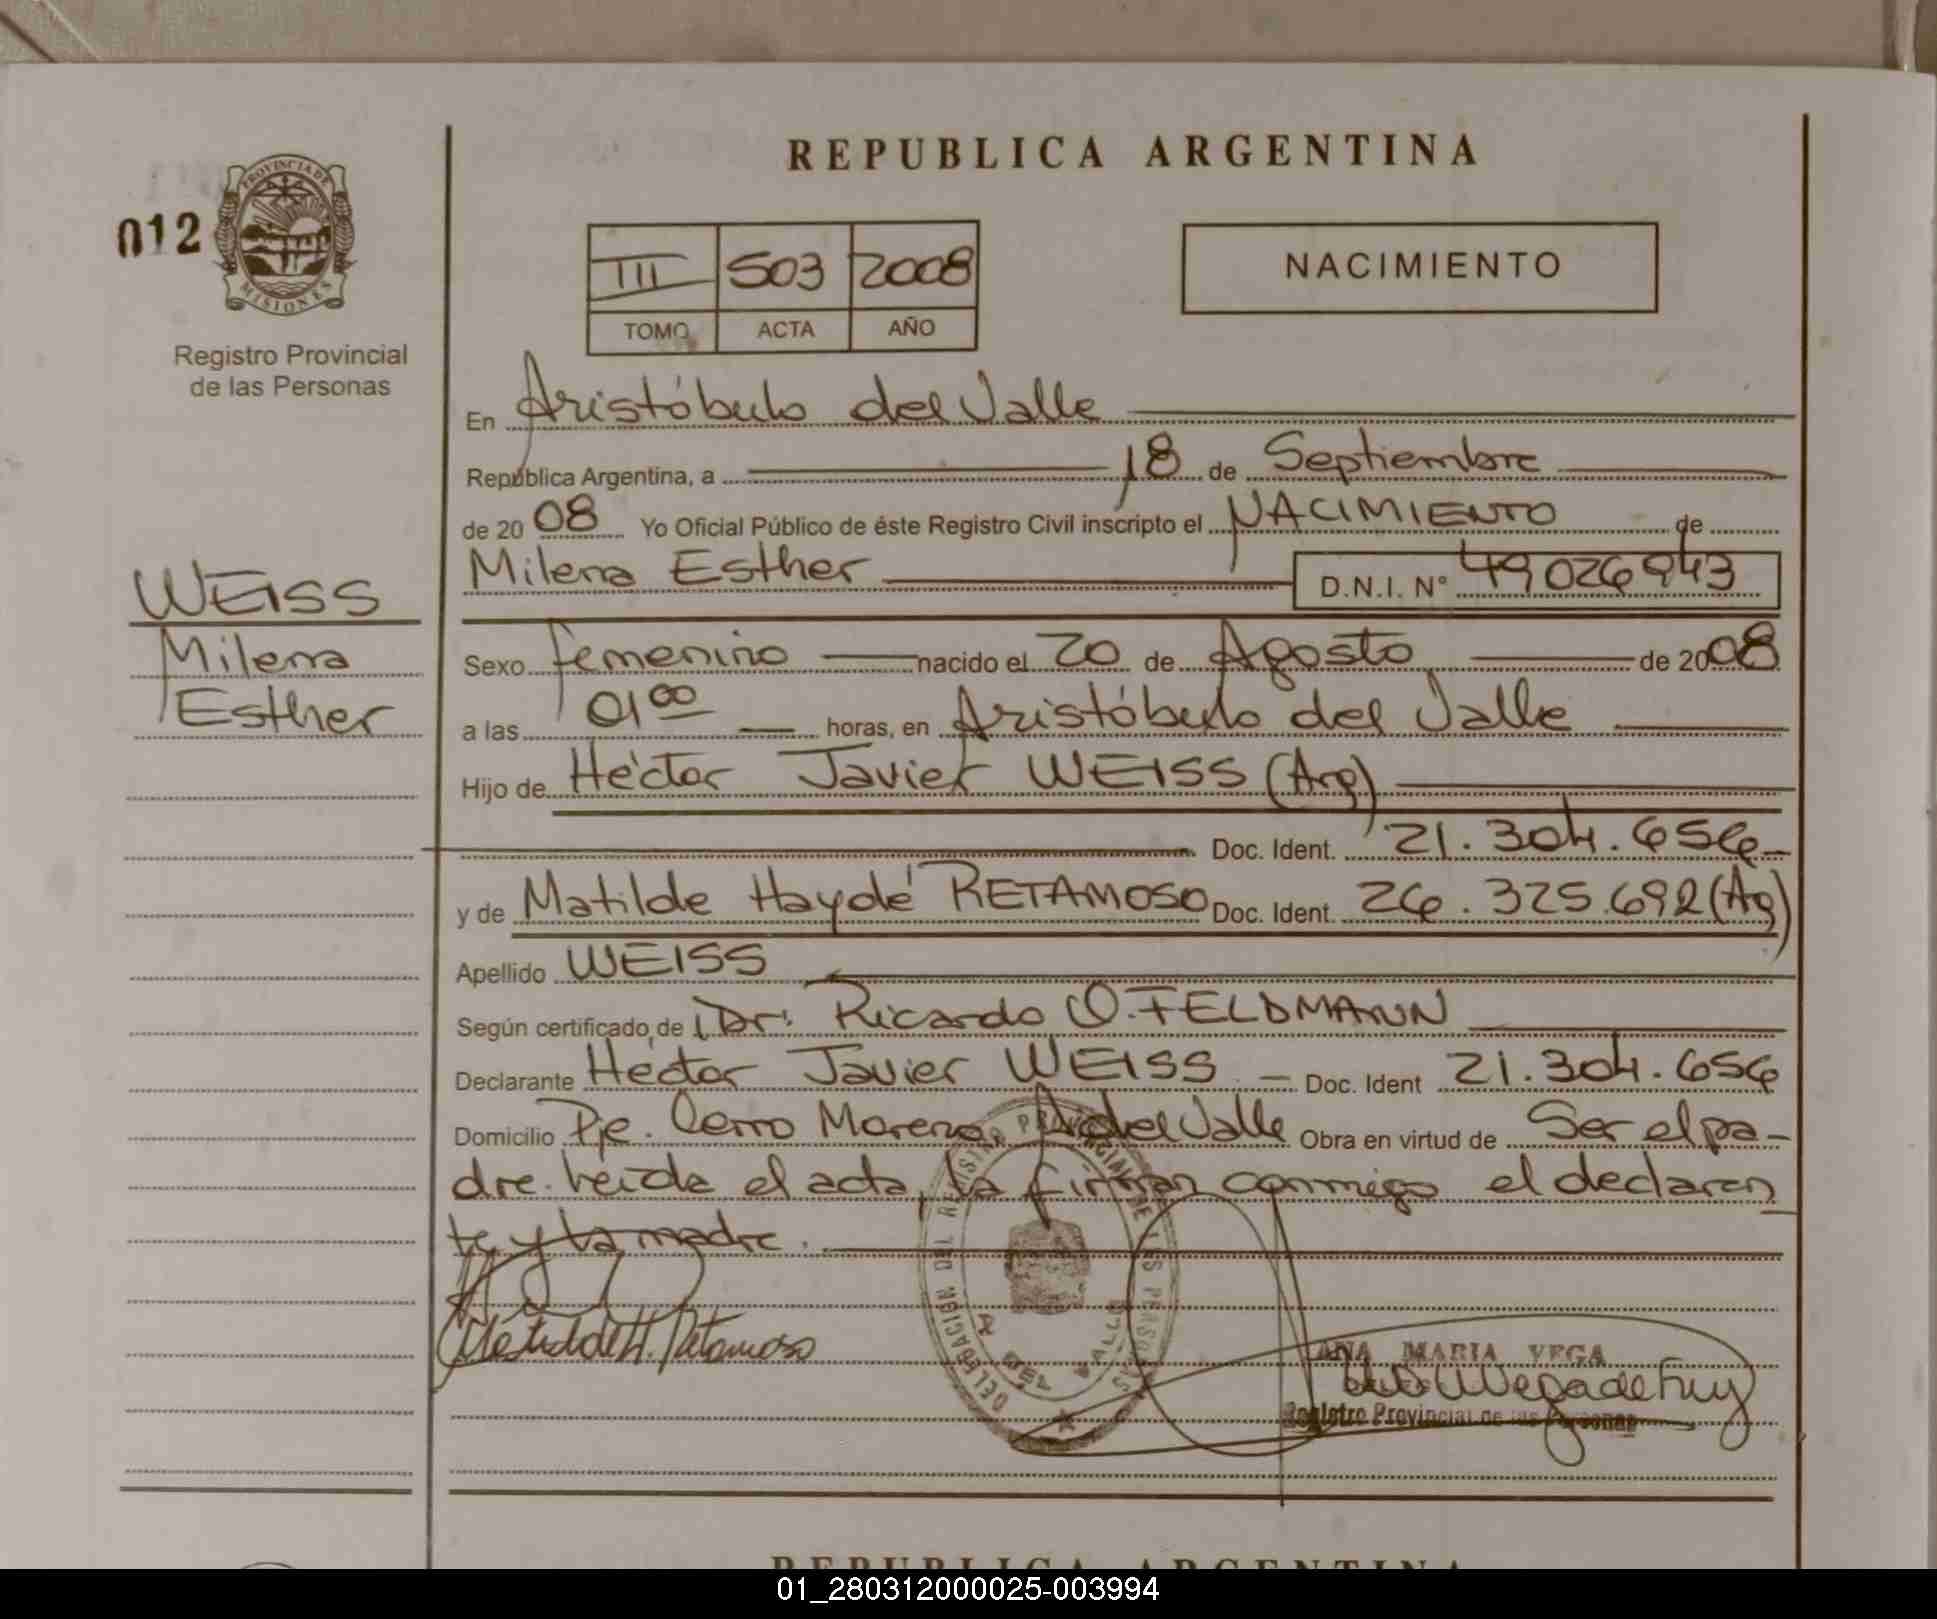 REPUBLICA ARGENTINA
012
PROVINCIA DE MISIONES
Registro Provincial
de las Personas
III 503 2008
TOMO ACTA AÑO
NACIMIENTO
En Aristóbulo del Valle
República Argentina, a 18 de Septiembre
de 2008 Yo Oficial Público de éste Registro Civil inscripto el NACIMIENTO de
Milena Esther D.N.I. Nº 49026943
WEISS
Milena
Esther
Sexo femenino nacido el 20 de Agosto de 2008
a las 01 00 horas, en Aristóbulo del Valle
Hijo de Héctor Javier WEISS (Arg)
Doc. Ident. 21.304.656
y de Matilde Haydé RETAMOSO Doc. Ident. 26.325.692 (Ag)
Apellido WEISS
Según certificado de Dr. Ricardo O. FELDMANN
Declarante Héctor Javier WEISS Doc. Ident 21.304.656
Domicilio Pje. Cerro Moreno A del Valle Obra en virtud de Ser el pa-
dre. Leída el acta, la firman conmigo el declaran
te y la madre.
Matilde H. Retamoso
DELEGACION DEL REGISTRO PROVINCIAL DE LAS PERSONAS
A DEL VALLE
ANA MARIA VEGA
Vega de Fuy
Registro Provincial de las Personas
REPUBLICA ARGENTINA
01_280312000025-003994